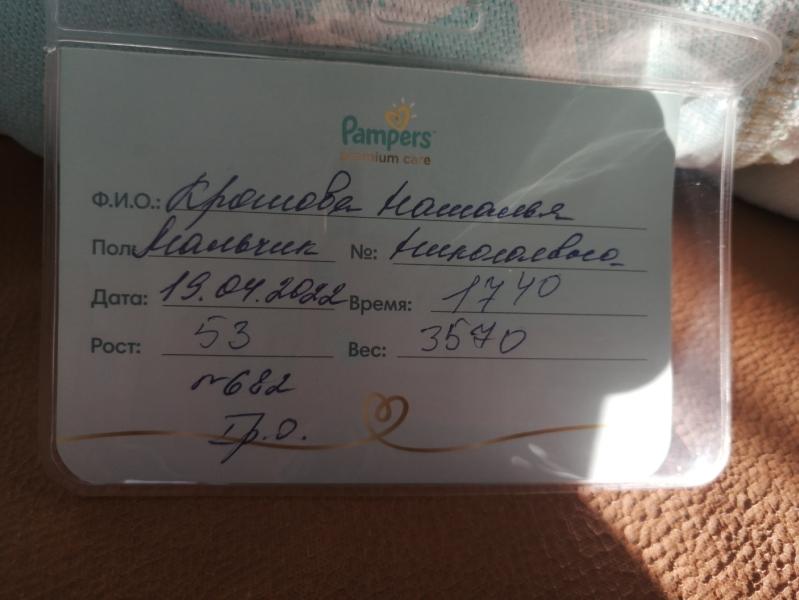 Pampers
premium care
Ф.И.О.: Крошова Наталья
Пол: Мальчик №: Николаевна
Дата: 19.04.2022 Время: 1740
Рост: 53 Вес: 3570
№682
Гр.О.